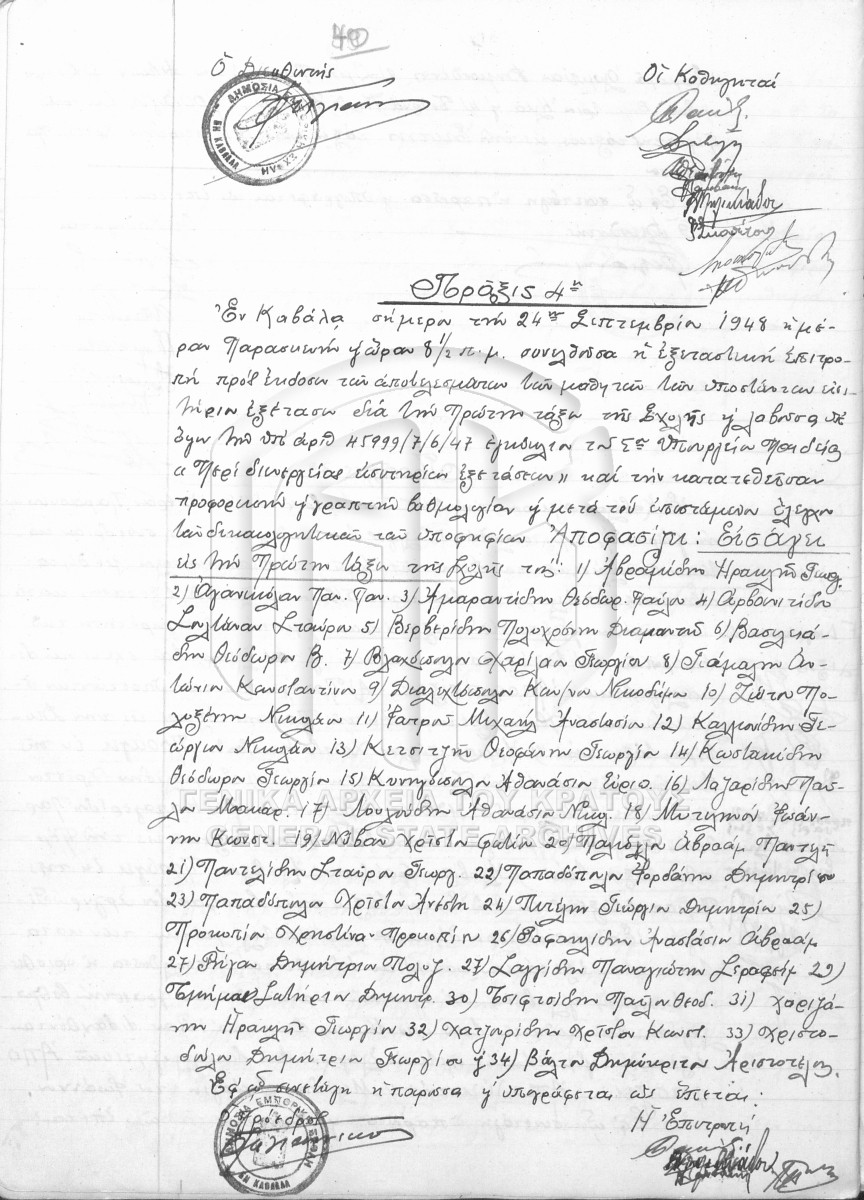 40
Ὁ Διευθυντής
Οἱ Καθηγηταί
ΔΗΜΟΣΙΑ ΕΜΠΟΡΙΚΗ ΣΧΟΛΗ
ΕΝ ΚΑΒΑΛΑ
Πρᾶξις 4η
Ἐν Καβάλᾳ σήμερον τήν 24ην Σεπτεμβρίου 1948 ἡμέ-
ραν Παρασκευήν ὥραν 8 1/2 π.μ. συνελθοῦσα ἡ ἐξεταστική ἐπιτρο-
πή πρός ἔκδοσιν τῶν ἀποτελεσμάτων τῶν μαθητῶν τῶν ὑποστάντων εἰσι-
τήριον ἐξέτασιν διά τήν Πρώτην τάξιν τῆς Σχολῆς ἡ λαβοῦσα ὑπ'
ὄψιν τήν ὑπ' ἀριθ 45999/7/6/47 ἐγκύκλιον τοῦ Σοῦ Ὑπουργείου Παιδείας
«Περί διενεργείας εἰσιτηρίων ἐξετάσεων» καί τήν κατατεθεῖσαν
προφορικήν ἡ γραπτήν βαθμολογίαν ἡ μετά τοῦ ἐπισταμένου ἔλεγχον
τῶν δικαιολογητικῶν τῶν ὑποψηφίων Ἀποφασίζει: Εἰσάγει
εἰς τήν Πρώτην τάξιν τῆς Σχολῆς τούς: 1) Ἀβραμίδην Ἡρακλῆν Γεωργ.
2) Ἀγανίκολαν Παν. Παν. 3) Ἀμαραντίδην Θεόδωρ. Παύλου 4) Ἀρβανιτίδου
Σουλτάναν Σταύρου 5) Βερβερίδην Πολυχρόνην Διαμαντῆ 6) Βασιλειά-
δην Θεόδωρον Β. 7) Βλαχόπουλον Χαρίλαον Γεωργίου 8) Γιάμαλην Ἀν-
τώνιον Κωνσταντίνου 9) Διαλεχτόπουλον Κων/νον Νικοδήμου 10) Ζώτου Πο-
λυξένην Νικολάου 11) Ἰατροῦ Μιχαήλ Ἀναστασίου 12) Καλμανίδην Γε-
ώργιον Νικολάου 13) Κετσιτζῆν Θεοφάνην Γεωργίου 14) Κωστακίδην
Θεόδωρον Γεωργίου 15) Κυνηγόπουλον Ἀθανάσιον Εὐριπ. 16) Λαζαρίδην Παῦ-
λον Μακαρ. 17) Λουλούδην Ἀθανάσιον Νικ. 18) Μυτιληνόν Ἰωάν-
νην Κωνστ. 19) Χρῆστον Φωτίου 20) Ἀβραάμ Παντελῆ
21) Παντελίδην Σταῦρον Γεωργ. 22) Παπαδόπουλον Ἰορδάνην Δημητρίου
23) Παπαδόπουλον Χρῆστον Ἀνέστη 24) Πιτέλην Γεώργιον Δημητρίου 25)
Προκοπίου Χρηστίναν Προκοπίου 26) Ραφαηλίδην Ἀναστάσιον Ἀβραάμ
27) Ρήγαν Δημήτριον Πολυζ. 27) Σαγγίδην Παναγιώτην Σεραφείμ 29)
Σωτήριον Δημητρ. 30) Τσιφτσίδην Παῦλον Θεοδ. 31) Χαριζά-
νην Ἡρακλῆν Γεωργίου 32) Χατζαρίδην Χρῆστον Κωνστ. 33) Χριστο-
δούλου Δημήτριον Γεωργίου 34) Βάλτον Δημόκριτον Ἀριστοτέλους.
Ἐφ' ᾧ συνετάγη ἡ παροῦσα ἡ ὑπογράφεται ὡς ἕπεται:
Ὁ Πρόεδρος
Ἡ Ἐπιτροπή
ΔΗΜΟΣΙΑ ΕΜΠΟΡΙΚΗ ΣΧΟΛΗ
ΕΝ ΚΑΒΑΛΑ
ΓΕΝΙΚΑ ΑΡΧΕΙΑ ΤΟΥ ΚΡΑΤΟΥΣ
GENERAL STATE ARCHIVES